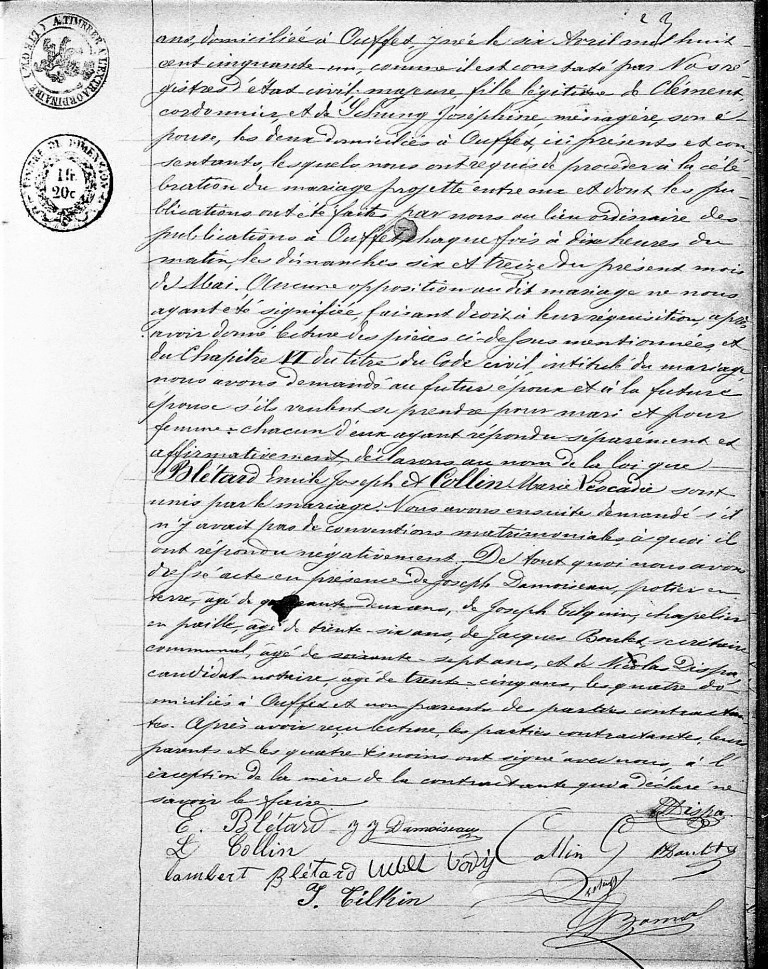 23
ans, domiciliée à Ouffet, y née le six Avril mil huit
cent cinquante-un, comme il est constaté par Nos ré-
gistres d'état civil, majeure, fille légitime de Clément,
cordonnier, et de Joséphine, ménagère, son é-
pouse, les deux domiciliés à Ouffet, ici présents et con-
sentants, lesquels nous ont requis de procéder à la célé-
bration du mariage projetté entre eux et dont les pu-
blications ont été faites par nous au lieu ordinaire des
publications à Ouffet, chaque fois à dix heures du
matin, les dimanches six et treize du présent mois
de Mai. Aucune opposition au dit mariage ne nous
ayant été signifiée, faisant droit à leur réquisition, après
avoir donné lecture des pièces ci-dessus mentionnées, et
du Chapitre VI du titre du Code civil, intitulé du mariage
nous avons demandé au futur époux et à la future
épouse s'ils veulent se prendre pour mari et pour
femme: chacun d'eux ayant répondu séparément et
affirmativement déclarons au nom de la loi que
Blétard Emile Joseph et Collin Marie Léocadie sont
unis par le mariage. Nous avons ensuite demandé s'il
n'y avait pas de conventions matrimoniales à quoi il
ont répondu negativement. De tout quoi nous avons
dressé acte en présence de Joseph Damoiseau, potier en
terre, agé de deux ans, de Joseph Tilquin, chapelier
en paille, agé de trente-six ans, de Jacques Boulet, secrétaire
communal, agé de soixante-sept ans, et de Nicolas Dispa,
candidat notaire, agé de trente-cinq ans, les quatre do-
miciliés à Ouffet et non parents des parties contractan-
tes. Après avoir reçu lecture, les parties contractantes, leurs
parents et les quatre témoins ont signé avec nous, à l'
exception de la mère de la contractante qui a déclaré ne
savoir le faire.
Dispa
E. Blétard J J Damoiseau
L Collin Collin
Lambert Blétard
J. Tilkin
A TIMBRER A L'EXTRAORDINAIRE
TIMBRE DE DIMENSION
1 fr.
20c